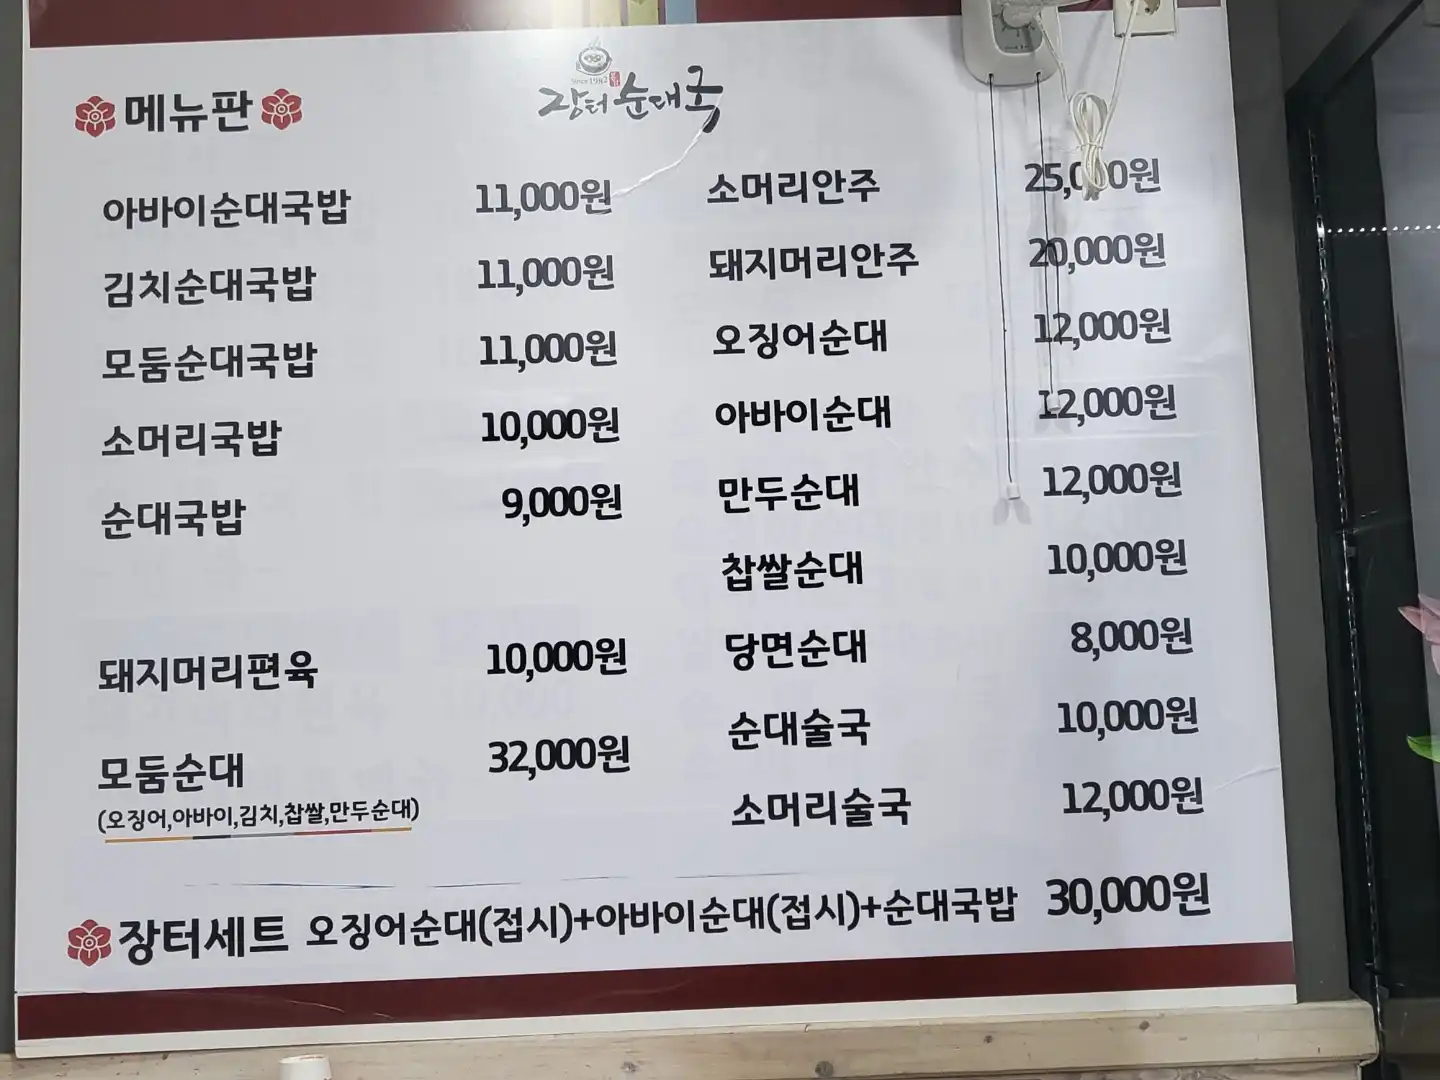 since 1982
장터순대국
메뉴판
아바이순대국밥 11,000원
김치순대국밥 11,000원
모둠순대국밥 11,000원
소머리국밥 10,000원
순대국밥 9,000원
돼지머리편육 10,000원
모둠순대 32,000원
(오징어,아바이,김치,찹쌀,만두순대)
소머리안주 25,000원
돼지머리안주 20,000원
오징어순대 12,000원
아바이순대 12,000원
만두순대 12,000원
찹쌀순대 10,000원
당면순대 8,000원
순대술국 10,000원
소머리술국 12,000원
장터세트 오징어순대(접시)+아바이순대(접시)+순대국밥 30,000원